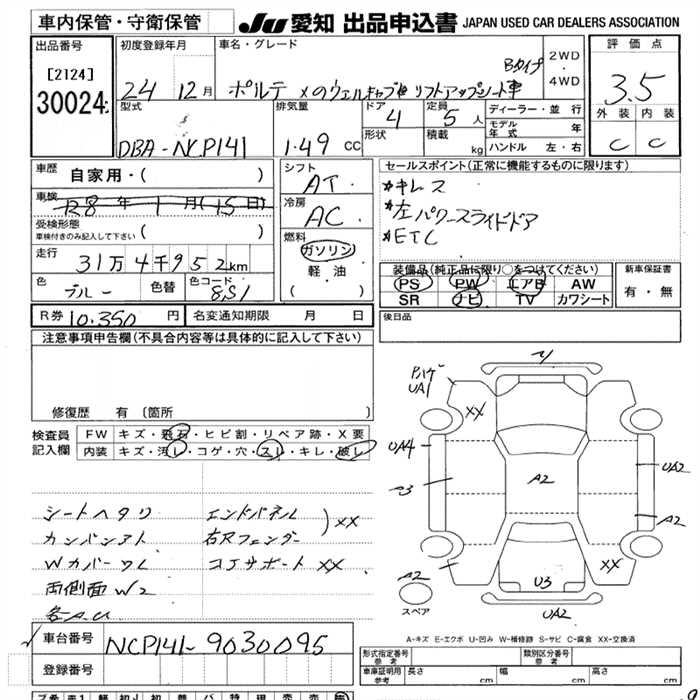 車内保管・守衛保管
JU 愛知 出品申込書 JAPAN USED CAR DEALERS ASSOCIATION
出品番号 [2124] 30024
初度登録年月 24 12月
車名・グレード ポルテ Bタイプ リフトアップシート車
2WD・4WD
評価点 3.5
外装 C 内装 C
型式 DBA-NCP141
排気量 1.49 CC
ドア 4
形状
定員 5人
積載 kg
ディーラー・並行
モデル年式 年
ハンドル 左・右
車歴 自家用・( )
車検 R8年 1月(15日)
受検形態
車検付きのみ記入して下さい ( )
走行 31万4千952km
色 ブルー 色替 色コード 8S1
シフト AT
冷房 AC
燃料 ガソリン
軽油
( )
セールスポイント(正常に機能するものに限ります)
*キレス
*左パワースライドドア
*ETC
装備品(純正品に限り○をつけてください)
PS PW エアB AW
SR ナビ TV カワシート
新車保証書 有・無
R券 10.350円 名変通知期限 月 日
後日品
注意事項申告欄(不具合内容等は具体的に記入して下さい)
修復歴 有〔箇所 〕
検査員記入欄
FW キズ・飛石・ヒビ割・リペア跡・X要
内装 キズ・汚レ・コゲ・穴・スレ・キレ・破レ
シートヘタリ エンドパネル
カンバンアト 右Rフェンダー )XX
Wカバーワレ コアサポート XX
両側面W2
各A.U
UA1
XX
UA4
A2
UA2
A3
A2
A2
XX
U3
UA2
スペア
A-キズ E-エクボ U-凹み W-補修跡 S-サビ C-腐食 XX-交換済
車台番号 NCP141-9030095
登録番号
形式指定番号 参考
類別区分番号 参考
車庫証明用 参考 長さ cm 幅 cm 高さ cm